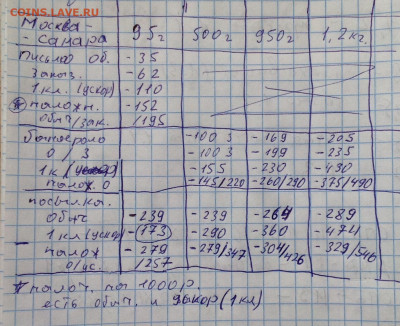 COINS.LAVE.RU
Москва -
- Самара 95г 500г 950г 1,2 кг.
Письмо об. - 35
Заказ. - 62
1 кл. (ускор) - 110
* налож. - 152
обыч/зак. /195
бандероль - 100 3 - 169 - 205
О / З - 100 3 - 199 - 235
1 кл (ускор) - 155 - 230 - 430
налож. О - 145/220 - 260/290 - 375/490
посылка.
обыч - 239 - 239 - 264 - 289
1 кл (ускор) - (173) - 290 - 360 - 474
- налож - 279 - 279/347 - 304/426 - 329/546
о/ус. /257
* налож. на 1000р.
есть обыч. и ускор (1 кл)